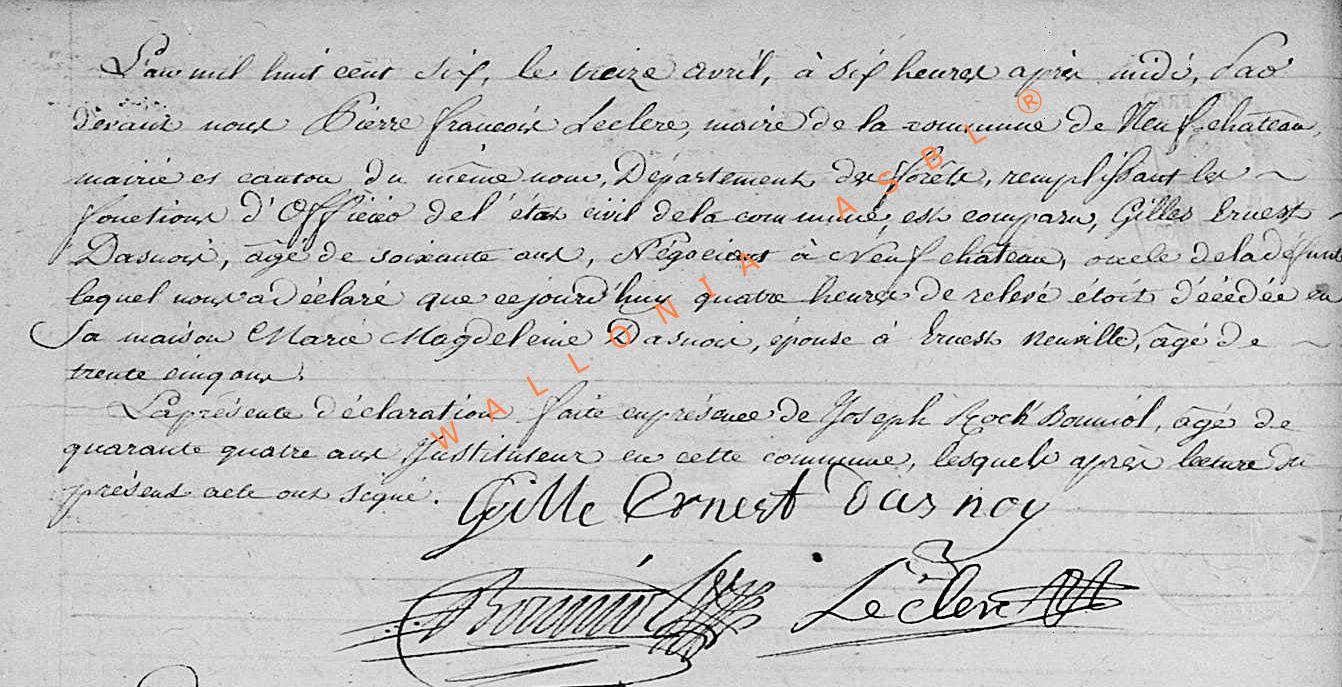 L'an mil huit cent six, le treize avril, à six heures après midi, Par
devant nous Pierre françois Leclere, maire de la commune de Neufchateau,
mairie et canton du même nom, Département des forêts, remplissant les
fonctions d'Officier de l'état civil de la commune, est comparu, Gilles Ernest
Dasnois, âgé de soixante ans, Négociant à Neufchateau, oncle de la défunte
lequel nous a déclaré que cejourd'huy quatre heures de relevé étoit décédée en
sa maison Marie Magdeleine Dasnois, épouse à Ernest Neuville, âgé de
trente cinq ans.
La présente déclaration faite en présence de Joseph Roch Bouniol, agé de
quarante quatre ans Instituteur en cette commune, lesquels après lecture du
présent acte ont signé.
Gille Ernest dasnoy
Bouniol Leclere
WALLONIA ASBL ®